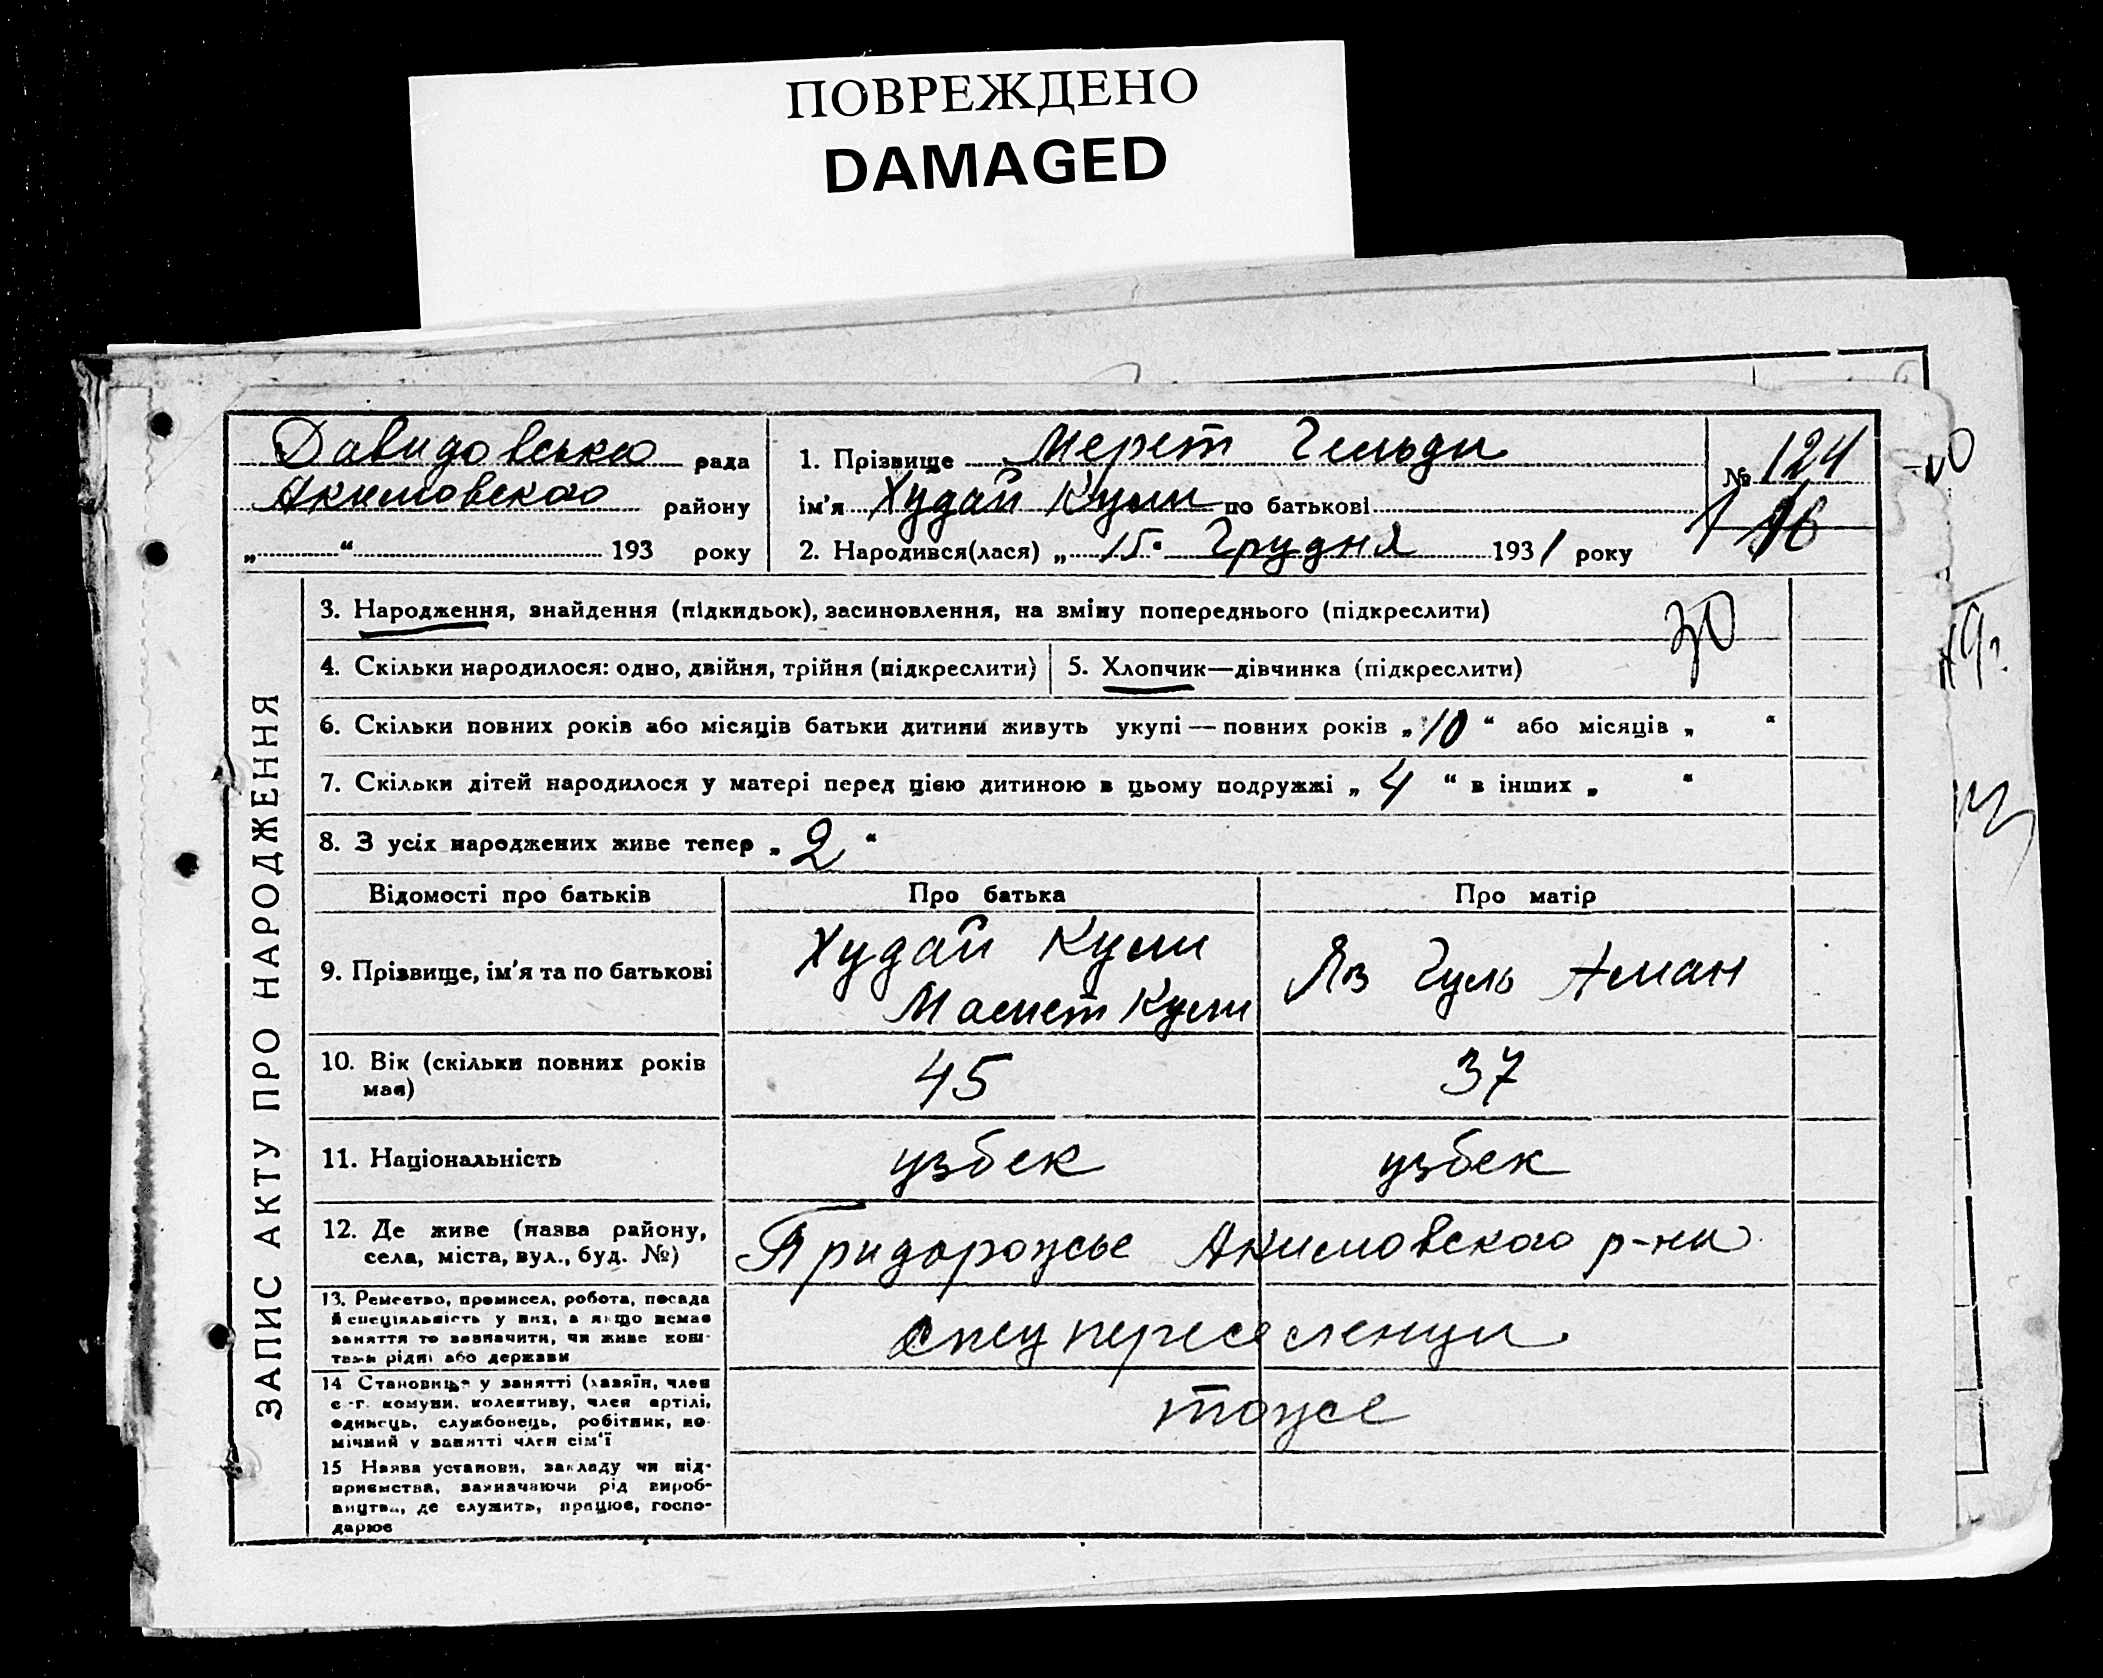 ПОВРЕЖДЕНО
DAMAGED
Давидовська рада
Акимовского району
„ “ 193 року
1. Прізвище Мерет Гельди
ім'я Худай Кули по батькові
2. Народився(лася) „ 15 “ Грудня 1931 року
№ 124
16
ЗАПИС АКТУ ПРО НАРОДЖЕННЯ
3. Народження, знайдення (підкидьок), засиновлення, на зміну попереднього (підкреслити)
30
4. Скільки народилося: одно, двійня, трійня (підкреслити)
5. Хлопчик—дівчинка (підкреслити)
6. Скільки повних років або місяців батьки дитини живуть укупі — повних років „ 10 “ або місяців „ “
7. Скільки дітей народилося у матері перед цією дитиною в цьому подружжі „ 4 “ в інших „ “
8. З усіх народжених живе тепер „ 2 “
Відомості про батьків
Про батька
Про матір
9. Прізвище, ім'я та по батькові
Худай Кули
Мамет Кули
Яз Гуль Аман
10. Вік (скільки повних років
має)
45
37
11. Національність
узбек
узбек
12. Де живе (назва району,
села, міста, вул., буд. №)
Придорожье Акимовского р-на
13. Ремество, промисел, робота, посада
й спеціяльність у них, а якщо немає
заняття то зазначити, чи живе кош-
тами рідні або держави
спецпереселенци
14 Становище у занятті (хазяїн, член
с.-г. комуни, колективу, член артілі,
одинець, службовець, робітник, по-
мічний у занятті член сім'ї
тоже
15 Назва установи, закладу чи під-
приємства, зазначаючи рід вироб-
ництва, де служить, працює, госпо-
дарює